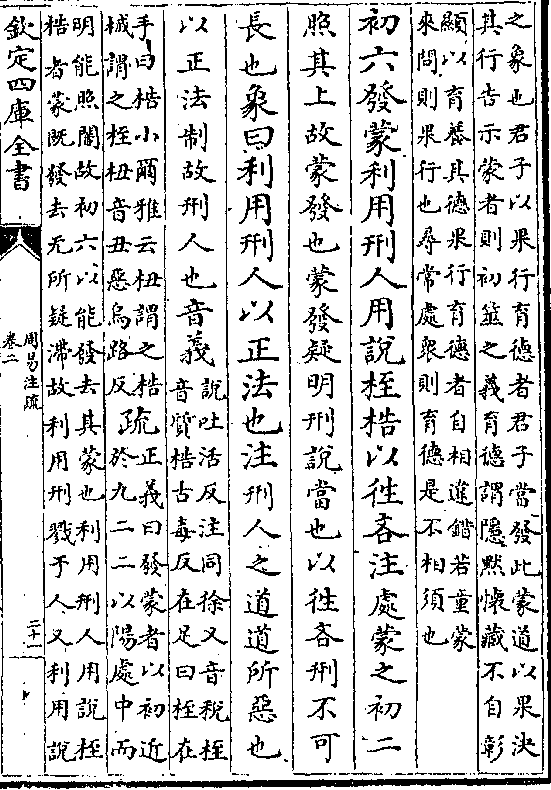 之象也君子以果行育德者君子當發此蒙道以果決
其行告示蒙者則初筮之義育德謂隱默懷藏不自彰
顯以育養其德果行育德者自相違錯若童蒙
來問則果行也尋常處衆則育德是不相須也
初六發蒙利用刑人用說桎梏以往吝注處蒙之初二
照其上故蒙發也蒙發疑明刑說當也以往吝刑不可
長也象曰利用刑人以正法也注刑人之道道所惡也
以正法制故刑人也音義
說吐活反注同徐又音稅桎
音質梏古毒反在足曰桎在
手曰梏小爾雅云杻謂之梏
械謂之桎杻音丑惡烏路反
疏
正義曰發蒙者以初近
於九二二以陽處中而
明能照闇故初六以能發去其蒙也利用刑人用說桎
梏者蒙既發去无所疑滯故利用刑戮于人又利用說
欽定四庫全書
周易注疏
卷二
二十一